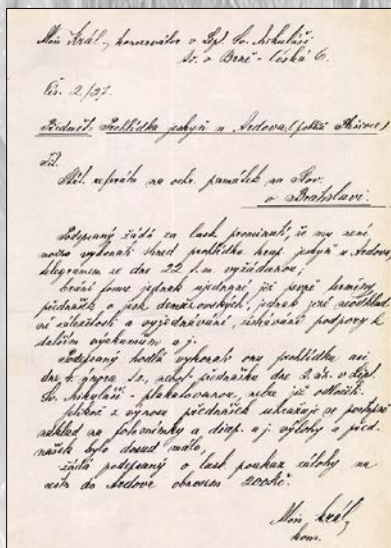 Alois Král, konservátor v Lipt. Sv. Mikuláši,
t.č. v Brně - Česká 6.
Čís. 2/27.
Předmět: Prohlídka jeskyň u Ardova (poblíž Plešivce)
Tit.
Stát. referátu na ochr. památek na Slov.
v Bratislavě.
Podepsaný žádá za lask. prominutí, že mu není
možno vykonati ihned prohlídku jeskyň u Ardova,
telegramem ze dne 22. t.m. vyžádanou;
brání tomu jednak ujednané již pevné termíny
přednášek o jesk. demänovských, jednak jiné neodklad-
né záležitosti a vyjednávání, získávání podpory k
dalším výzkumům a j.
Podepsaný hodlá vykonati onu prohlídku asi
dne února t.r., neboť přednášku dne 2. v Lipt.
Sv. Mikuláši - plakátovanou, nelze již odložiti.
Jelikož z výnosu přednášek uhrazuje se
náklad na fotosnímky a diap. a j. výlohy a před-
nášek bylo dosud málo,
žádá podepsaný o lask. poukaz zálohy na
cestu do Ardova obnosem 200 Kč.
Alois Král,
kons.